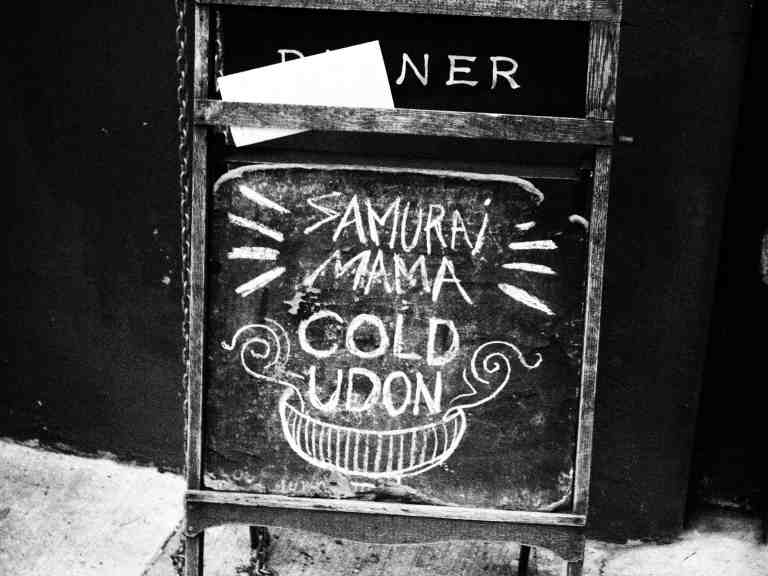 D NER
SAMURAI
MAMA
COLD
UDON